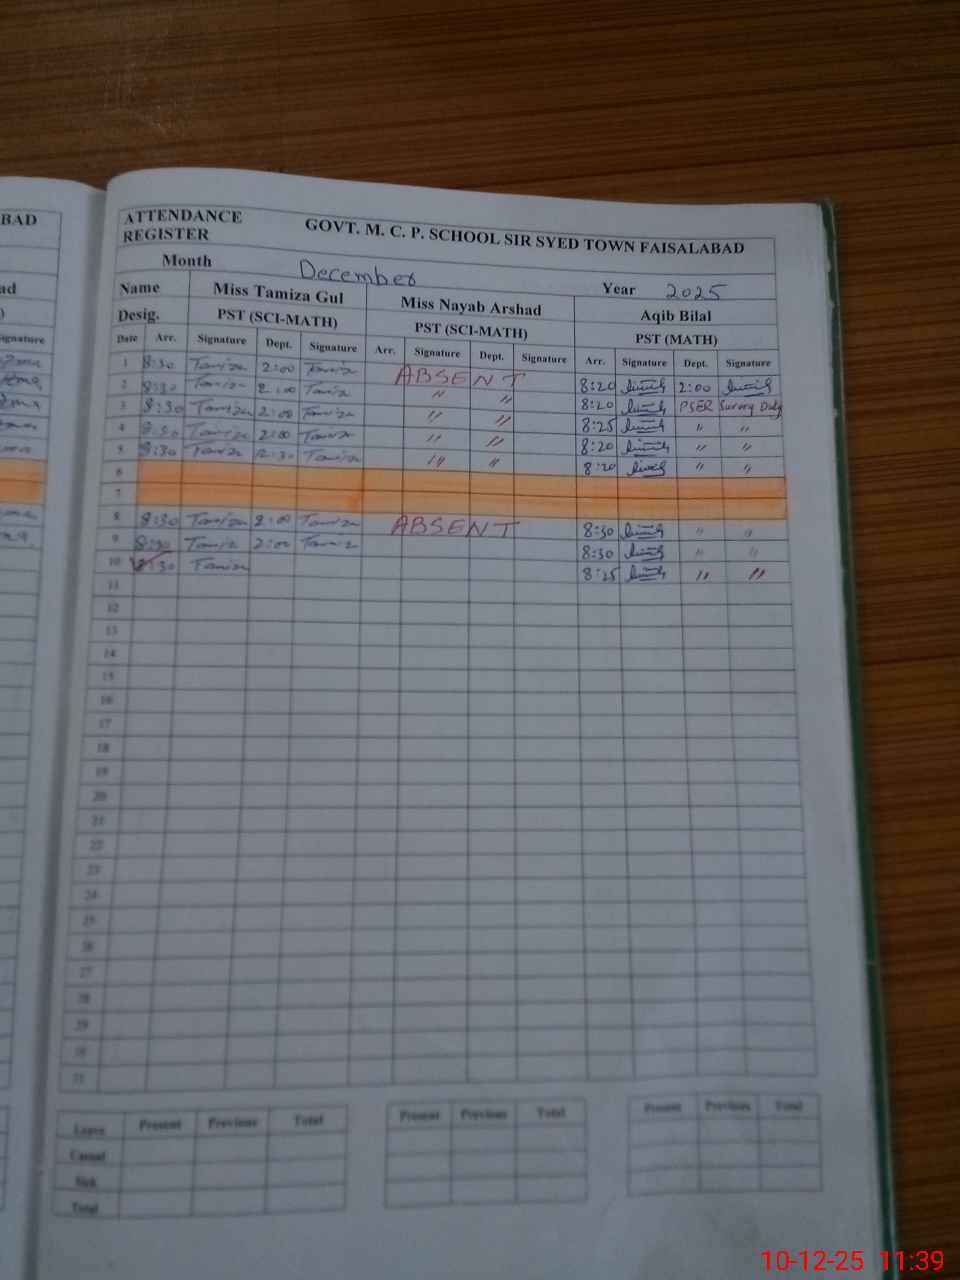 BAD
ATTENDANCE REGISTER
GOVT. M. C. P. SCHOOL SIR SYED TOWN FAISALABAD
Month December Year 2025
Name Miss Tamiza Gul Miss Nayab Arshad Aqib Bilal
Desig. PST (SCI-MATH) PST (SCI-MATH) PST (MATH)
Date Arr. Signature Dept. Signature Arr. Signature Dept. Signature Arr. Signature Dept. Signature
1 8:30 Tamiza 2:00 Tamiza ABSENT 8:20 2:00
2 8:30 Tamiza 2:00 Tamiza " " 8:20 PSER Survey Duty
3 8:30 Tamiza 2:00 Tamiza " " 8:25 " "
4 8:30 Tamiza 2:00 Tamiza " " 8:20 " "
5 8:30 Tamiza 12:30 Tamiza " " 8:20 " "
6
7
8 8:30 Tamiza 2:00 Tamiza ABSENT 8:30 " "
9 8:30 Tamiza 2:00 Tamiza 8:30 " "
10 8:30 Tamiza 8:25 " "
11
12
13
14
15
16
17
18
19
20
21
22
23
24
25
26
27
28
29
30
31
Leave Present Previous Total Present Previous Total Present Previous Total
Casual
Sick
Total
10-12-25 11:39